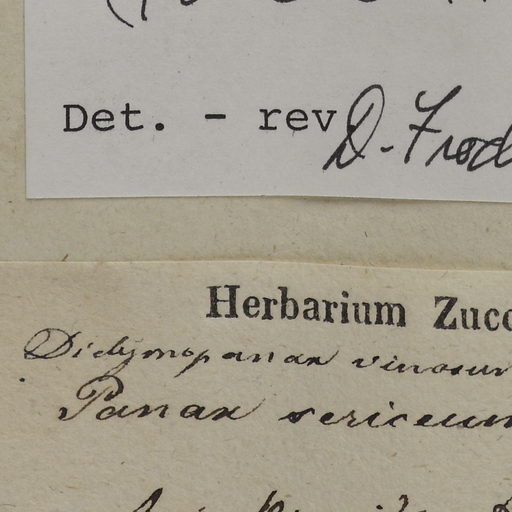 Det. - rev D. Frod
Herbarium Zucc
Didymopanax vinosum
Panax sericeum